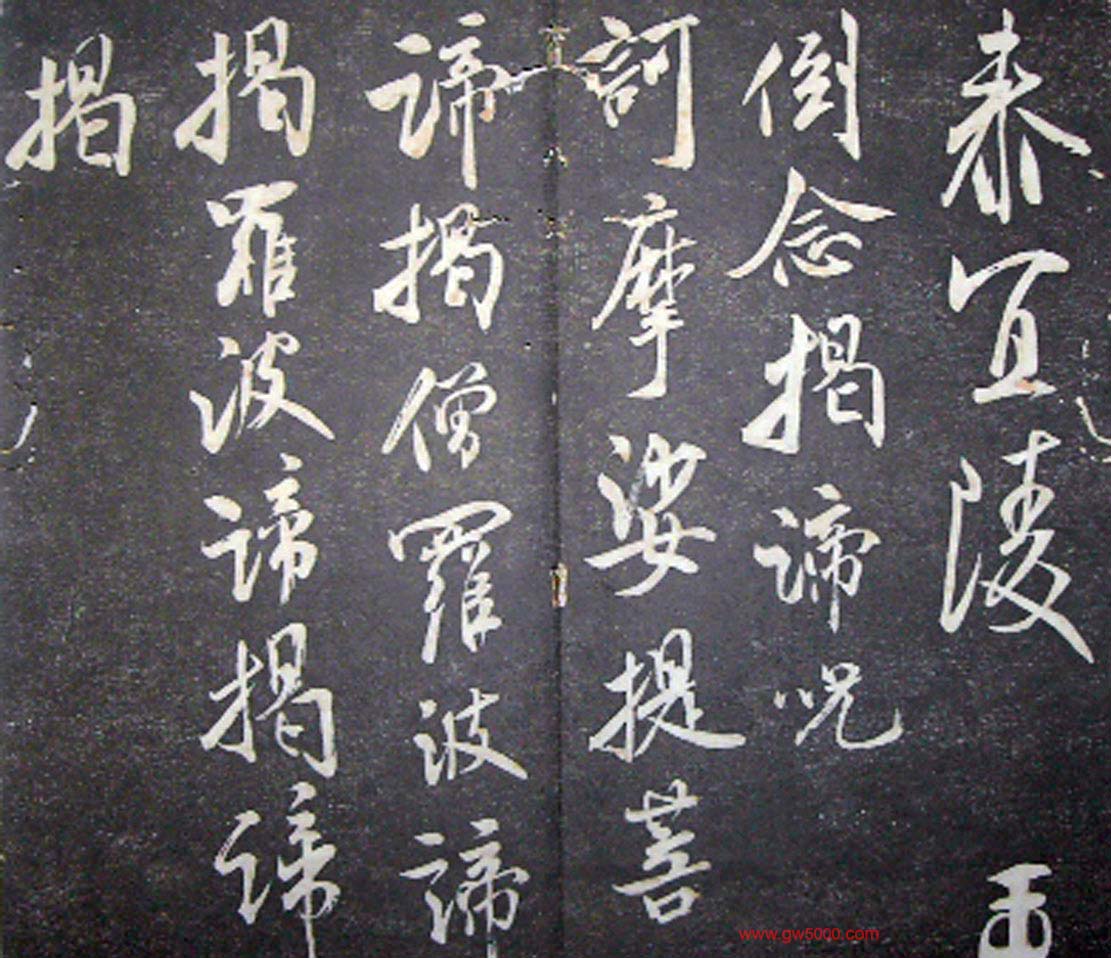 秦宜陵
倒念揭諦呪
訶摩娑提菩
諦揭僧羅波諦
揭羅波諦揭諦
揭
www.gw5000.com